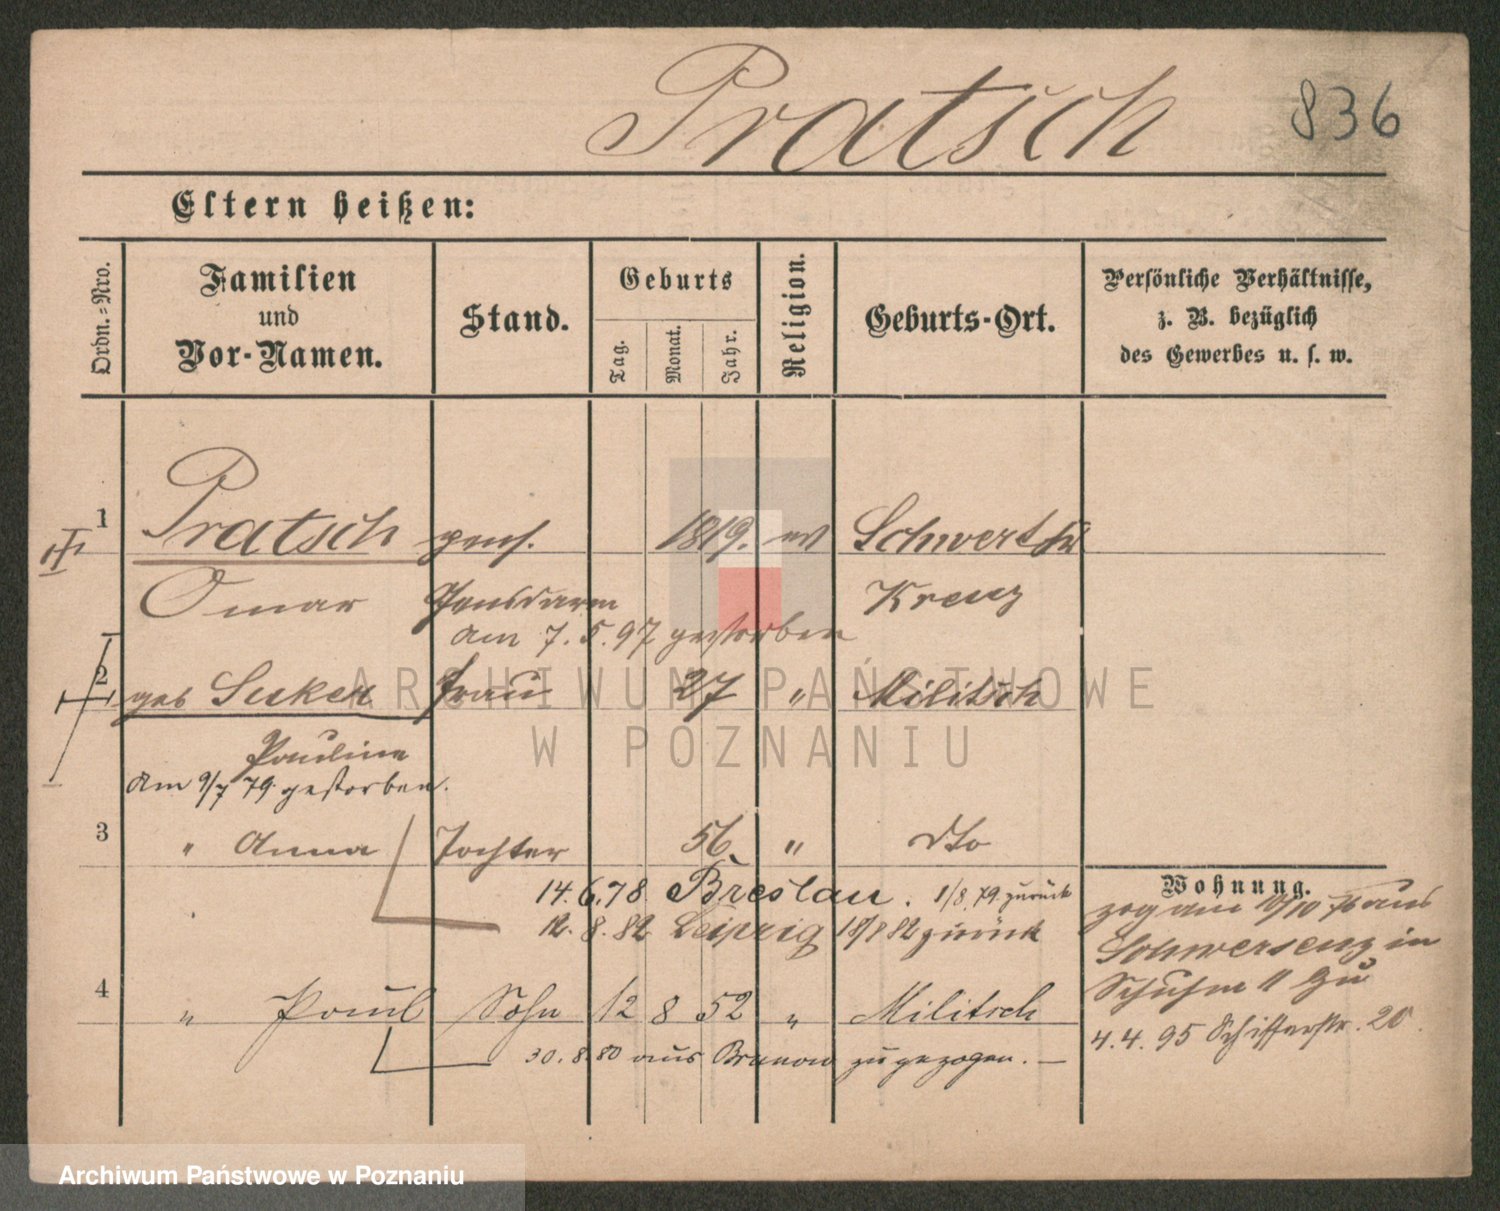 Pratsch 836
Eltern heißen:
Ordn.-Nro. Familien und Vor-Namen. Stand. Geburts Tag. Monat. Jahr. Religion. Geburts-Ort. Persönliche Verhältnisse, z. B. bezüglich des Gewerbes u. s. w.
1 Pratsch pens. 1819. ev Schwert
Omar Gensdarm Kreuz
am 7.5.97 gestorben
2 geb Suker Frau 27 " Militsch
Pauline
am 9/7 79 gestorben.
3 " Anna Tochter 56 " dto
Wohnung.
14.6.78 Breslau. 1/8.79. zurück
12.8.82 Leipzig 18/8 82 zurück
zog am 10/10 76 aus
Schwersenz in
Schuhm 11 zu
4 " Paul Sohn 12 8 52 " Militsch
4.4.95 Schifferstr. 20.
30.8.80 aus Brunow zugezogen. —
ARCHIWUM PAŃSTWOWE
W POZNANIU
Archiwum Państwowe w Poznaniu